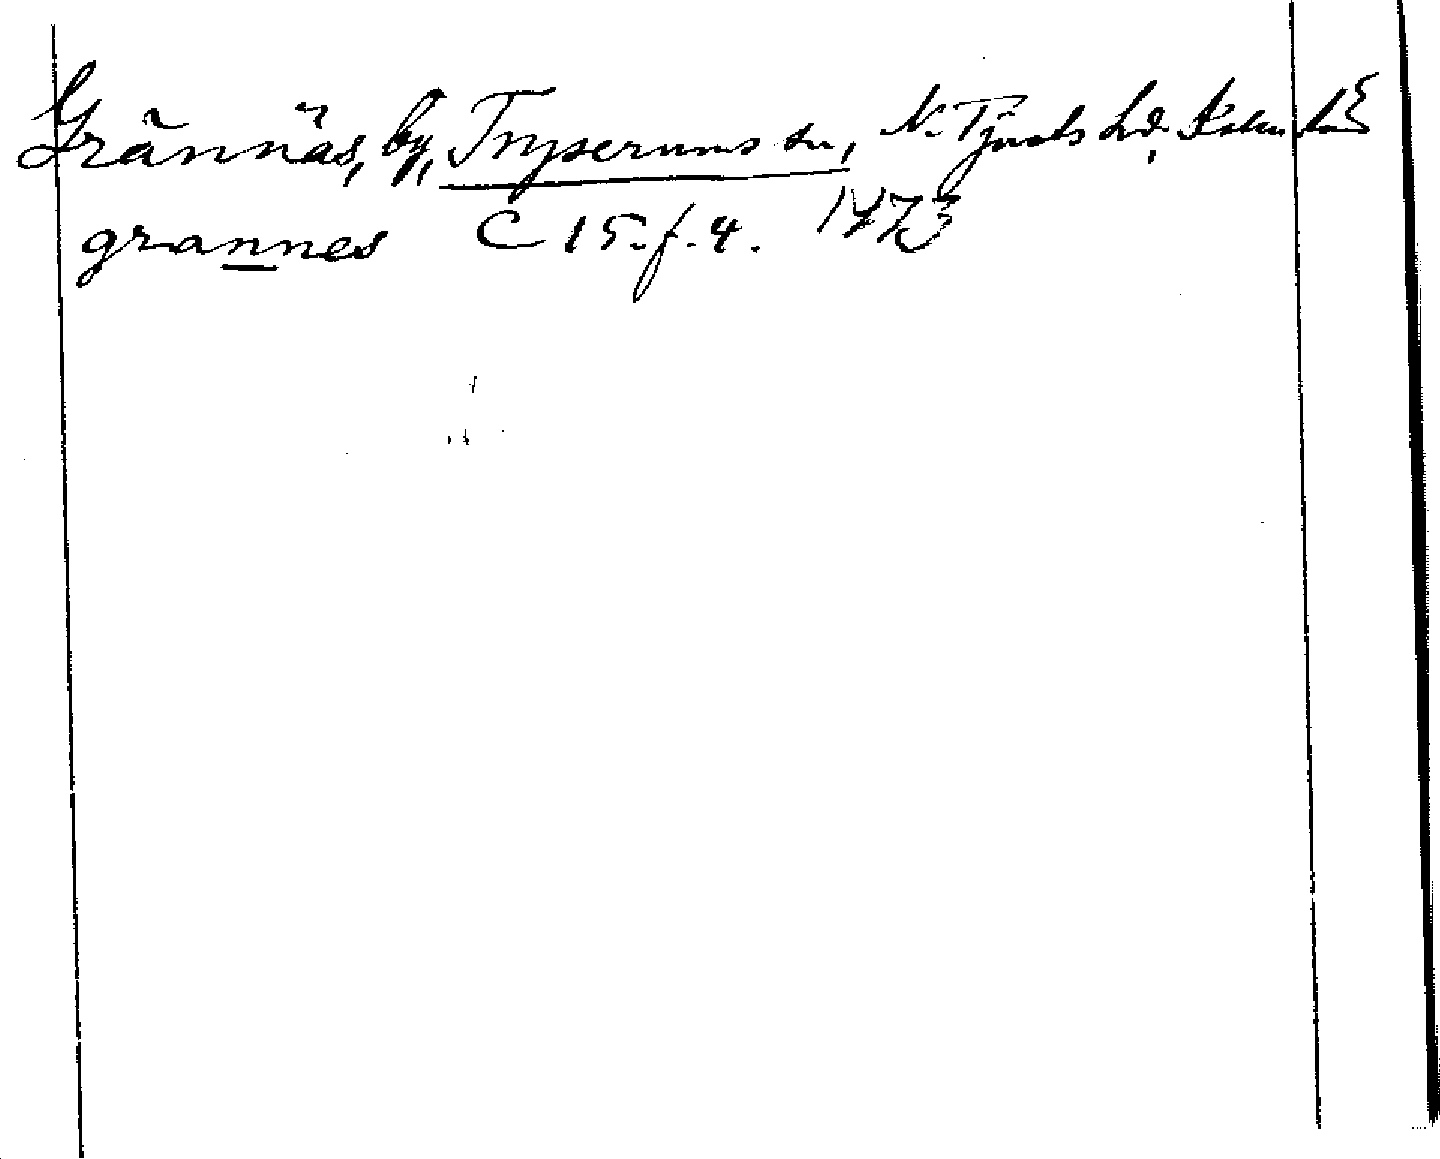 Grännäs, by, Tryserums sn, N. Tjusts hd. Kalm. län
grannes C 15. f. 4. 1473